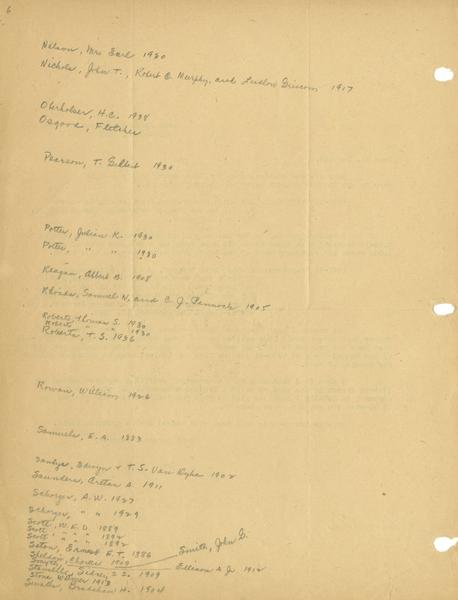 6
Nelson, Mrs Earl 1930
Nichols, John T., Robert C. Murphy, and Ludlow Griscom 1917
Oberholser, H.C. 1938
Osgood, Fletcher
Pearson, T. Gilbert 1930
Potter, Julian K. 1930
Potter, " " 1930
Reagan, Albert B. 1908
Rhoads, Samuel N. and C. J. Pennock 1905
Roberts, Thomas S. 1930
Roberts " " 1930
Roberts, T.S. 1936
Rowan, William 1926
Samuels, E.A. 1883
Sandys, Edwyn & T.S. Van Dyke 1902
Saunders, Aretas A. 1911
Schorger, A.W. 1927
Schorger, " " 1929
Scott, W.E.D. 1889
Scott " " " 1892
Scott " " " 1892
Seton, Ernest E.T. 1886
Sheldon, Charles 1909
Smyth, Ellison A Jr. 1912
Smith, John G.
Stansell, Sidney S.S. 1909
Stone, Witmer 1913
Swales, Bradshaw H. 1904